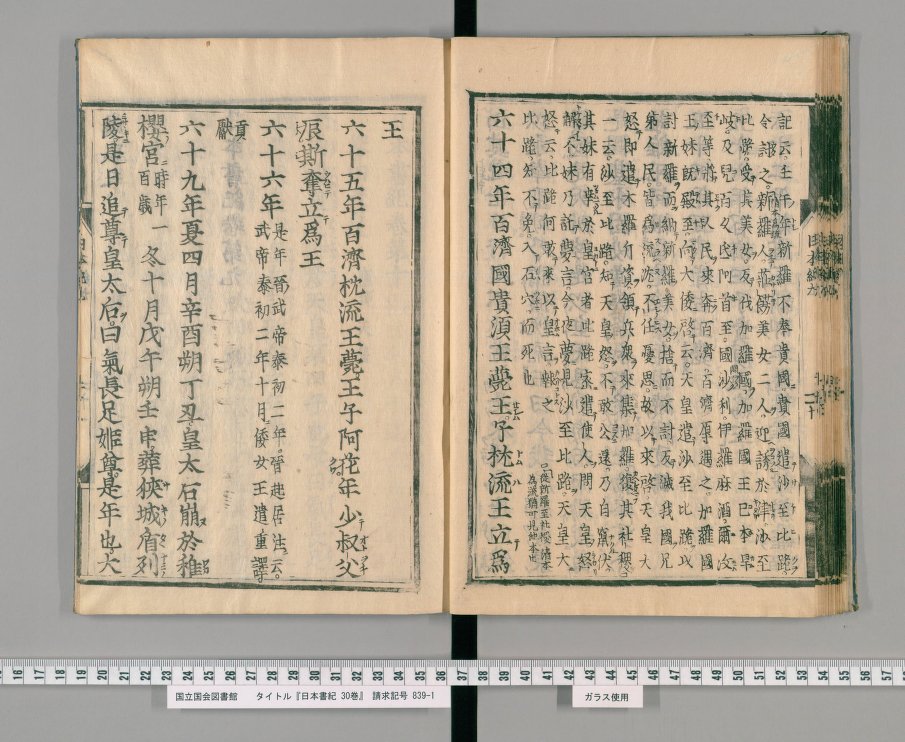 記云壬午年新羅不奉貴國貴國遣沙至比跪
令討之新羅人莊飾美女二人迎誘於津沙至
比跪受其美女反伐加羅國加羅國王己本旱
岐及兒百久至阿首至國沙利伊羅麻酒爾汶
至等將其人民來奔百濟百濟厚遇之加羅國
王妹既殿至向大倭啓云天皇遣沙至比跪以
討新羅而納新羅美女捨而不討反滅我國兄
弟人民皆爲流沈不任憂思故以來啓天皇大
怒即遣木羅斤資領兵衆來集加羅復其社稷
一云沙至比跪知天皇怒不敢公還乃自竄伏
其妹有幸於皇宮者比跪密遣使人問天皇怒
解不妹乃託夢言今夜夢見沙至比跪天皇大
怒云比跪何敢來以皇言報之
比跪知不免入石穴而死也
六十四年百濟國貴湏王薨王子枕流王立爲
王
六十五年百濟枕流王薨王子阿花年少叔父
辰斯奪立爲王
六十六年是年晉武帝泰初二年晉起居注云
武帝泰初二年十月倭女王遣重譯
貢獻
六十九年夏四月辛酉朔丁丑皇太后崩於稚
櫻宮時年一百歳冬十月戊午朔壬申葬狹城盾列
陵是日追尊皇太后曰氣長足姫尊是年也大
16 17 18 19 20 21 22 23 24 25 26 27 28 29 30 31 32 33 34 35 36 37 38 39 40 41 42 43 44 45 46 47 48 49 50 51 52 53 54 55 56 57
国立国会図書館 タイトル『日本書紀 30巻』 請求記号 839-1
ガラス使用